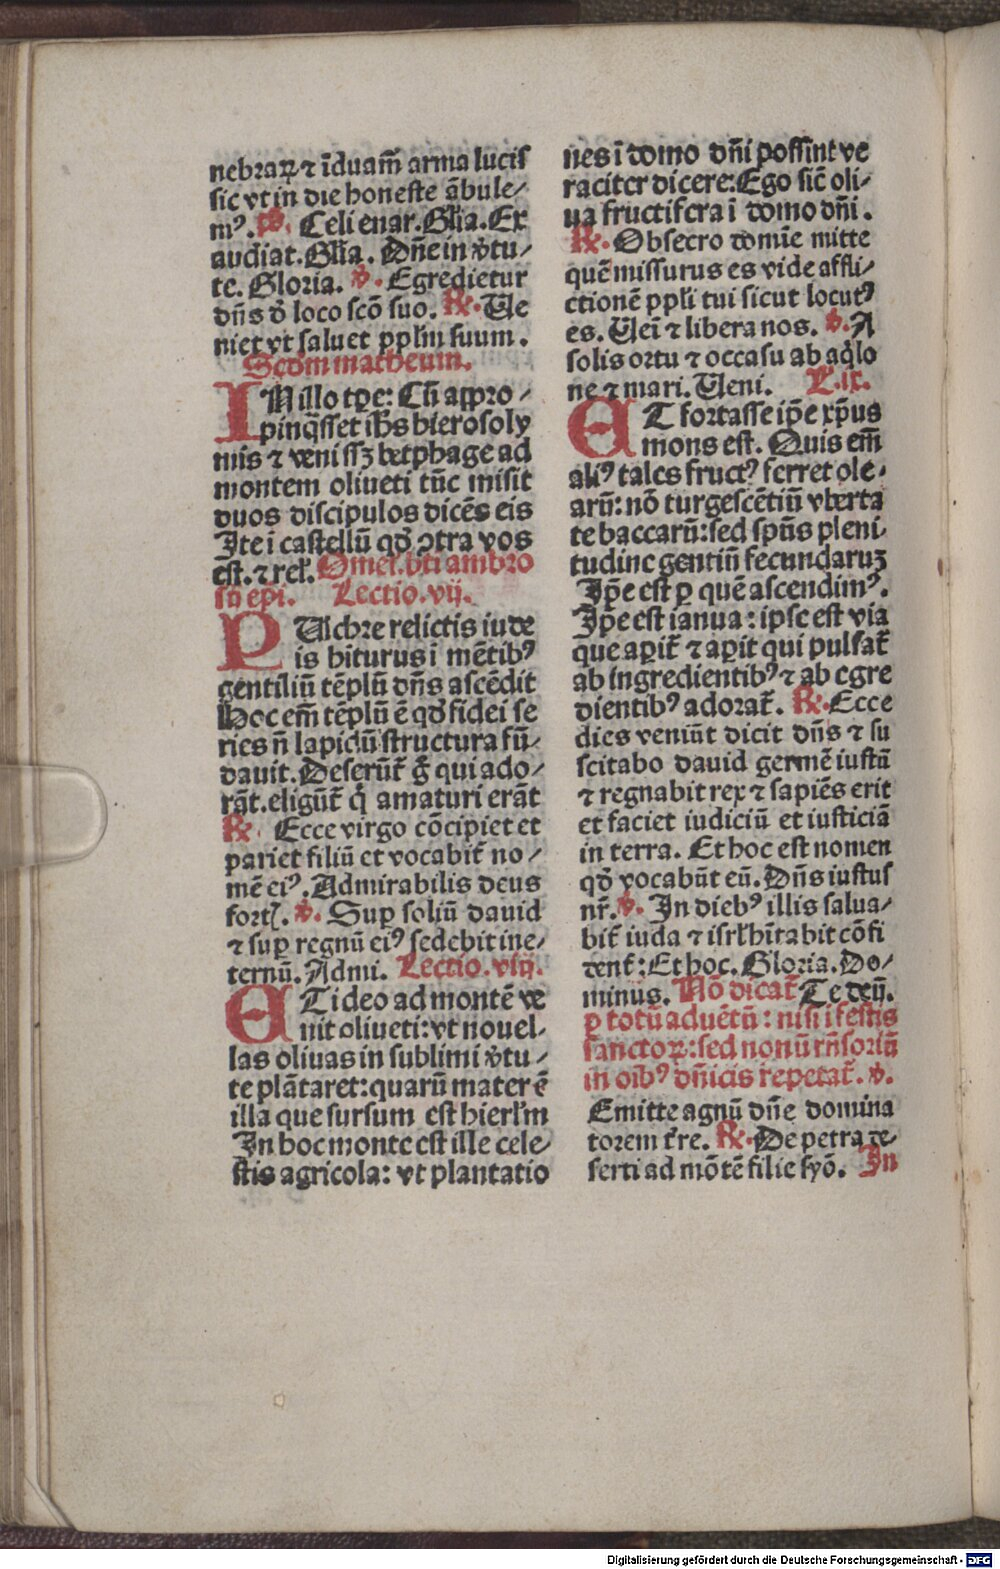 nebraꝝ ⁊ ĩduam̃ arma lucis
sic vt in die honeste ãbule⸗
mꝰ. p̃s. Celi enar. Gl̃ia. Ex
audiat. Gl̃ia. Dñe in v̾tu⸗
te. Gloria. ℣. Egredietur
dñs ð loco scõ suo. ℟. Ue
niet vt saluet pplm̃ suum.
Scðm matheum.
IN illo tꝑe: Cũ appro⸗
pinq̃sset ihs̃ hierosoly
mis ⁊ venissꝫ betphage ad
montem oliueti tũc misit
duos discipulos dicẽs eis
Ite ĩ castellũ qð ꝯtra vos
est. ⁊ rel̃. Omel̃. bti ambro
sij epi. Lectio. vij.
PUlchre relictis iude
is hiturus ĩ mẽtibꝰ
gentiliũ tẽplũ dñs ascẽdit
Hoc em̃ tẽplũ ẽ qð fidei se
ries ñ lapidũ structura fũ⸗
dauit. Deserũt̃ g̃ qui ado⸗
rãt. eligũt̃ q̃ amaturi erãt
℟. Ecce virgo cõcipiet et
pariet filiũ et vocabit̃ no⸗
mẽ eiꝰ. Admirabilis deus
fortꝭ. ℣. Suꝑ soliũ dauid
⁊ suꝑ regnũ eiꝰ sedebit in e⸗
ternũ. Admi. Lectio. viij.
ET ideo ad montẽ ve
nit oliueti: vt nouel⸗
las oliuas in sublimi v̾tu⸗
te plãtaret: quarũ mater ẽ
illa que sursum est hierlm̃
In hoc monte est ille cele⸗
stis agricola: vt plantatio
nes ĩ domo dñi possint ve
raciter dicere: Ego sic̃ oli⸗
ua fructifera ĩ domo dñi.
℟. Obsecro domĩe mitte
quẽ missurus es vide affli⸗
ctionẽ ppli tui sicut locutꝰ
es. Uei ⁊ libera nos. ℣. A
solis ortu ⁊ occasu ab aq̃lo
ne ⁊ mari. Ueni. L. ix.
ET fortasse ip̃e xp̃us
mons est. Quis em̃
aliꝰ tales fructꝰ ferret ole⸗
arũ: nõ turgescẽtiũ vberta
te baccarũ: sed sp̃us pleni⸗
tudine gentiũ fecundaruꝫ
Ip̃e est ꝑ quẽ ascendimꝰ.
Ip̃e est ianua: ipse est via
que aꝑit̃ ⁊ aꝑit qui pulsat̃
ab ingredientibꝰ ⁊ ab egre
dientibꝰ adorat̃. ℟. Ecce
dies veniũt dicit dñs ⁊ su
scitabo dauid germẽ iustũ
⁊ regnabit rex ⁊ sapiẽs erit
et faciet iudiciũ et iusticiã
in terra. Et hoc est nomen
qð vocabũt eũ. Dñs iustus
nr̃. ℣. In diebꝰ illis salua⸗
bit̃ iuda ⁊ isrl̃ hĩtabit cõfi
dent̃: Et hoc. Gloria. Do⸗
minus. Nõ dicat̃ Te deũ.
ꝑ totũ aduẽtũ: nisi ĩ festis
sanctoꝝ: sed nonũ rñsoriũ
in oĩbꝰ dñicis repetat̃. ℣.
Emitte agnũ dñe domina
torem t̃re. ℟. De petra de⸗
serti ad mõtẽ filie syõ. In
Digitalisierung gefördert durch die Deutsche Forschungsgemeinschaft - DFG